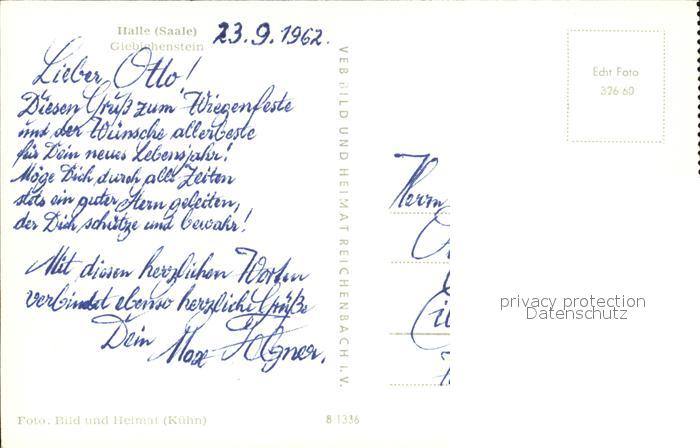 Halle (Saale)
Giebichenstein
23.9.1962.
Lieber Otto!
Diesen Gruß zum Wiegenfeste
und der Wünsche allerbeste
für Dein neues Lebensjahr!
Möge Dich durch alle Zeiten
stets ein guter Stern geleiten,
der Dich schütze und bewahr!
Mit diesen herzlichen Worten
verbindet ebenso herzliche Grüße
Dein
Max
VEB BILD UND HEIMAT REICHENBACH i. V.
Echt Foto
326 60
Herrn
privacy protection
Datenschutz
Foto: Bild und Heimat (Kühn)
B 1336